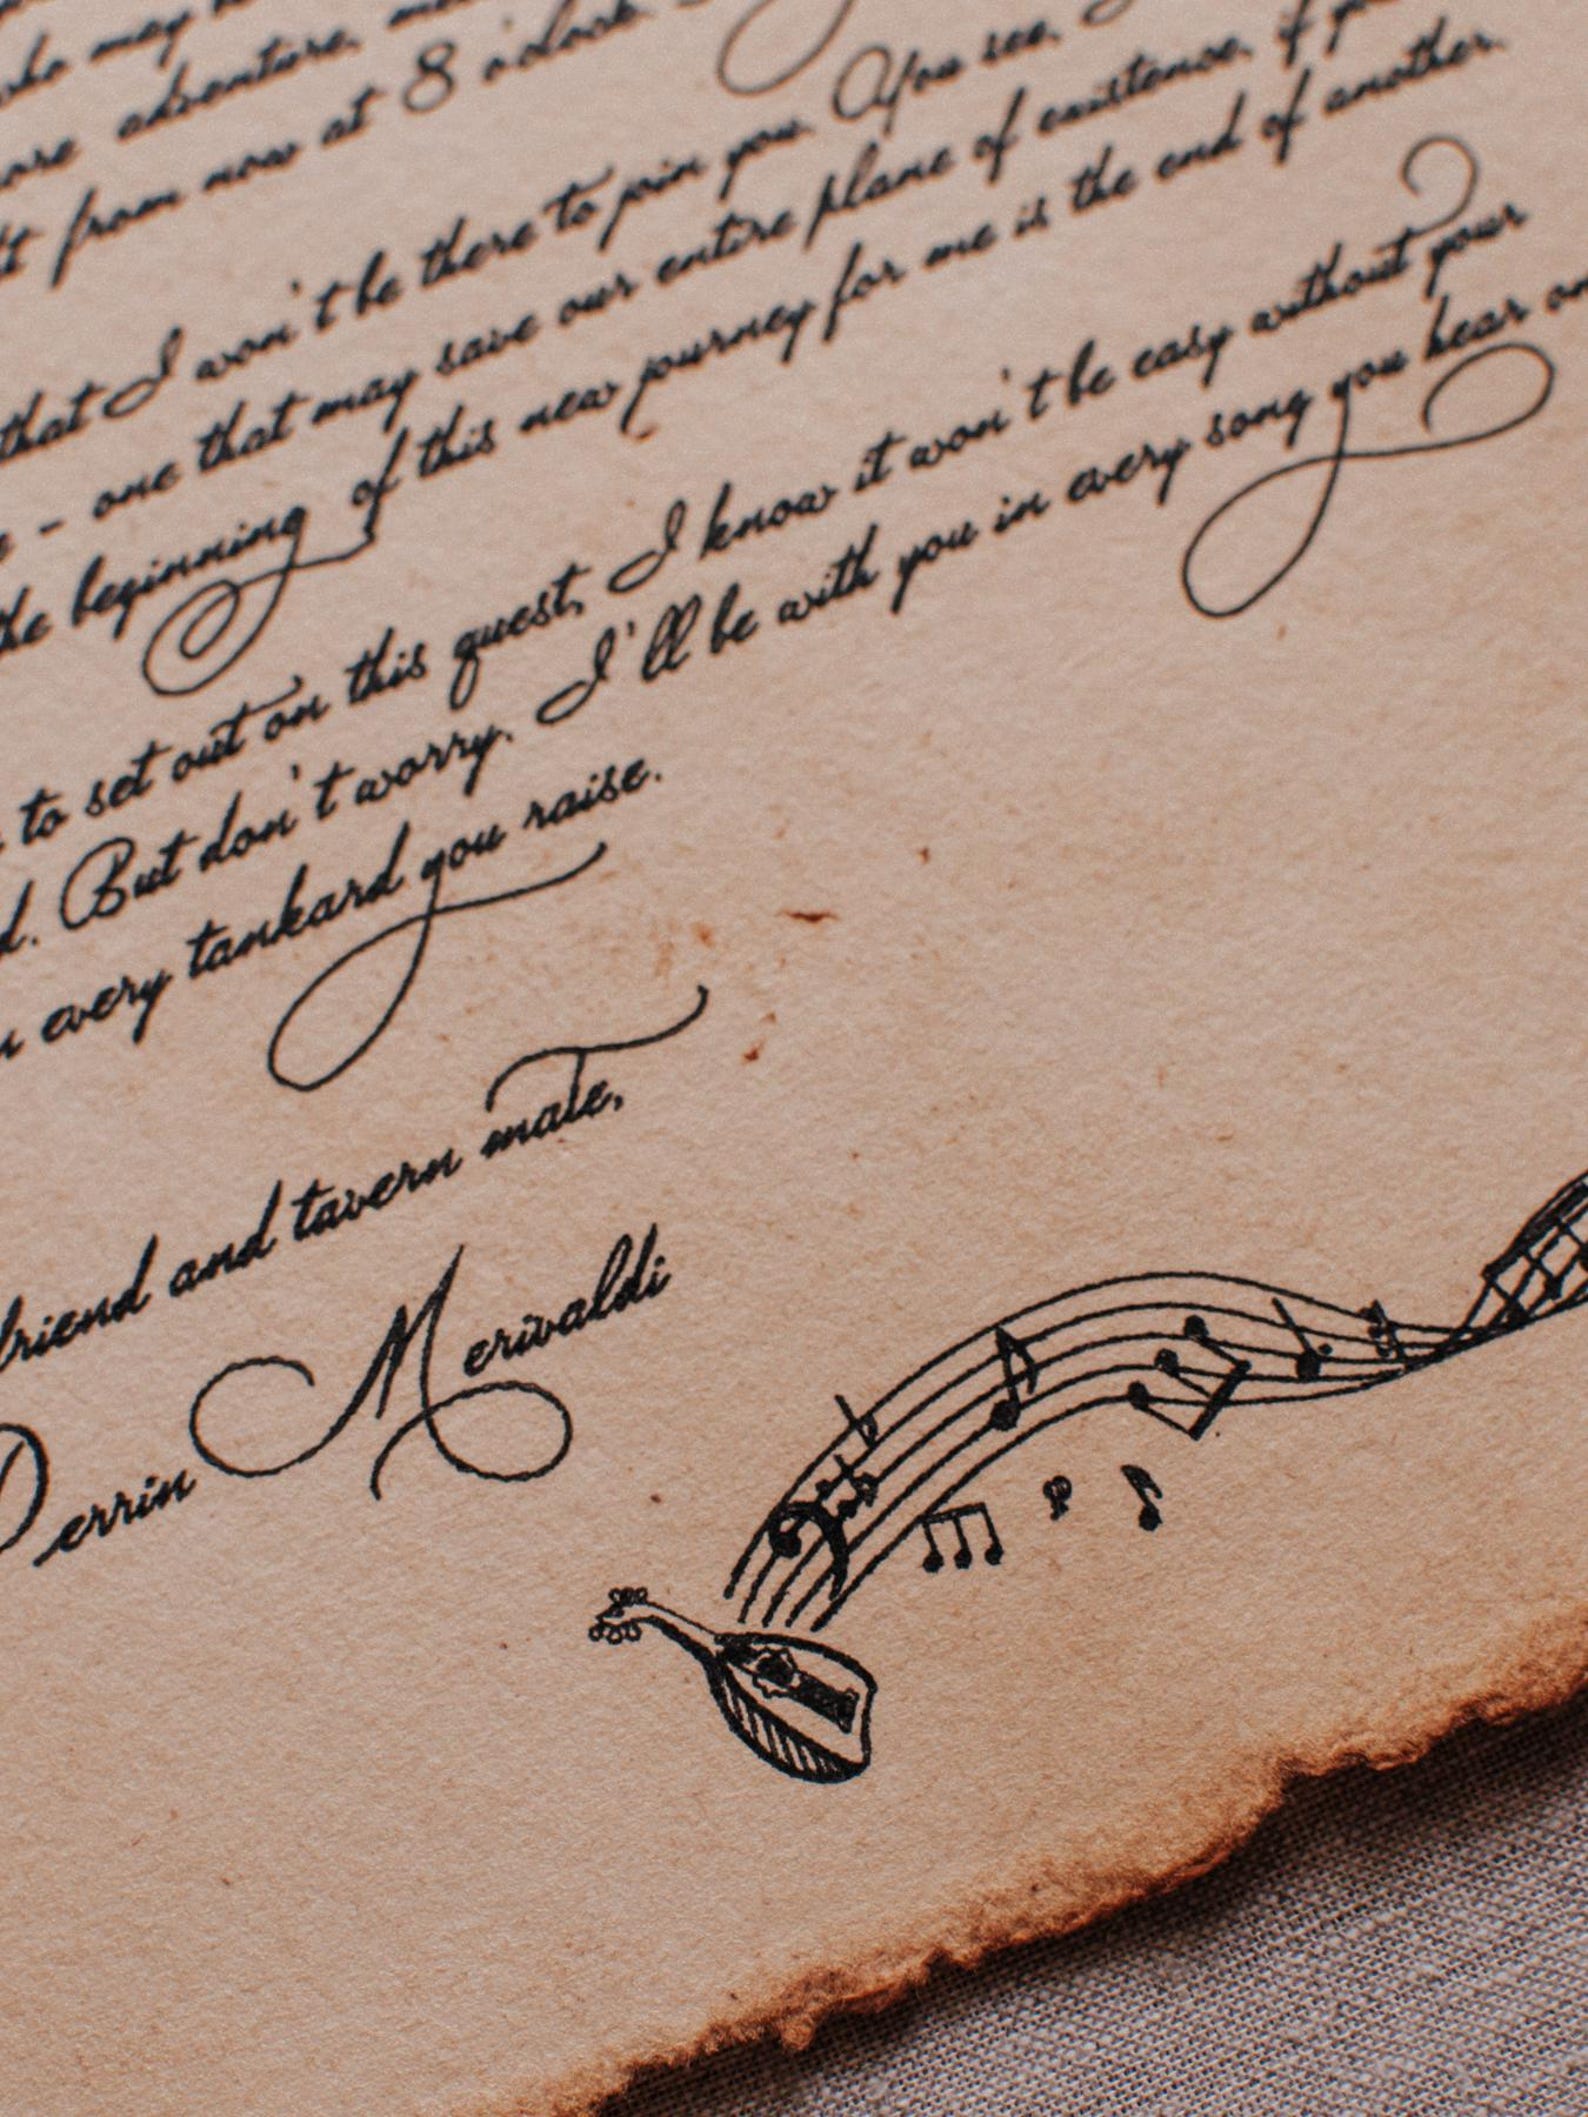 who may
ore adventure,
from now at 8 o'clock.
that I won't be there to join you. You see,
- one that may save our entire plane of existence, if
the beginning of this new journey for me is the end of another.
to set out on this quest, I know it won't be easy without your
d. But don't worry. I'll be with you in every song you hear
every tankard you raise.
friend and tavern mate,
Perrin Merivaldi